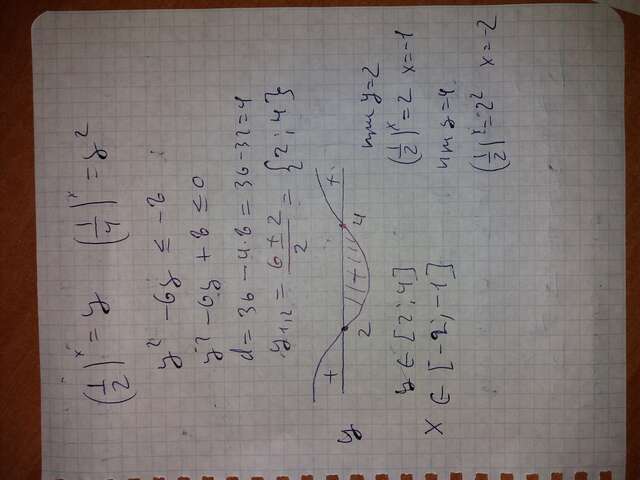 (1/2)^x = y (1/4)^x = y^2
y^2 - 6y ≤ -8
y^2 - 6y + 8 ≤ 0
d = 36 - 4·8 = 36 - 32 = 4
y1,2 = (6 ± 2)/2 = {2; 4}
y + 2 + 4 +
при y=2
y ∈ [2; 4]
(1/2)^x = 2 x = -1
x ∈ [-2; -1]
при y=4
(1/2)^x = 2^2 x = -2